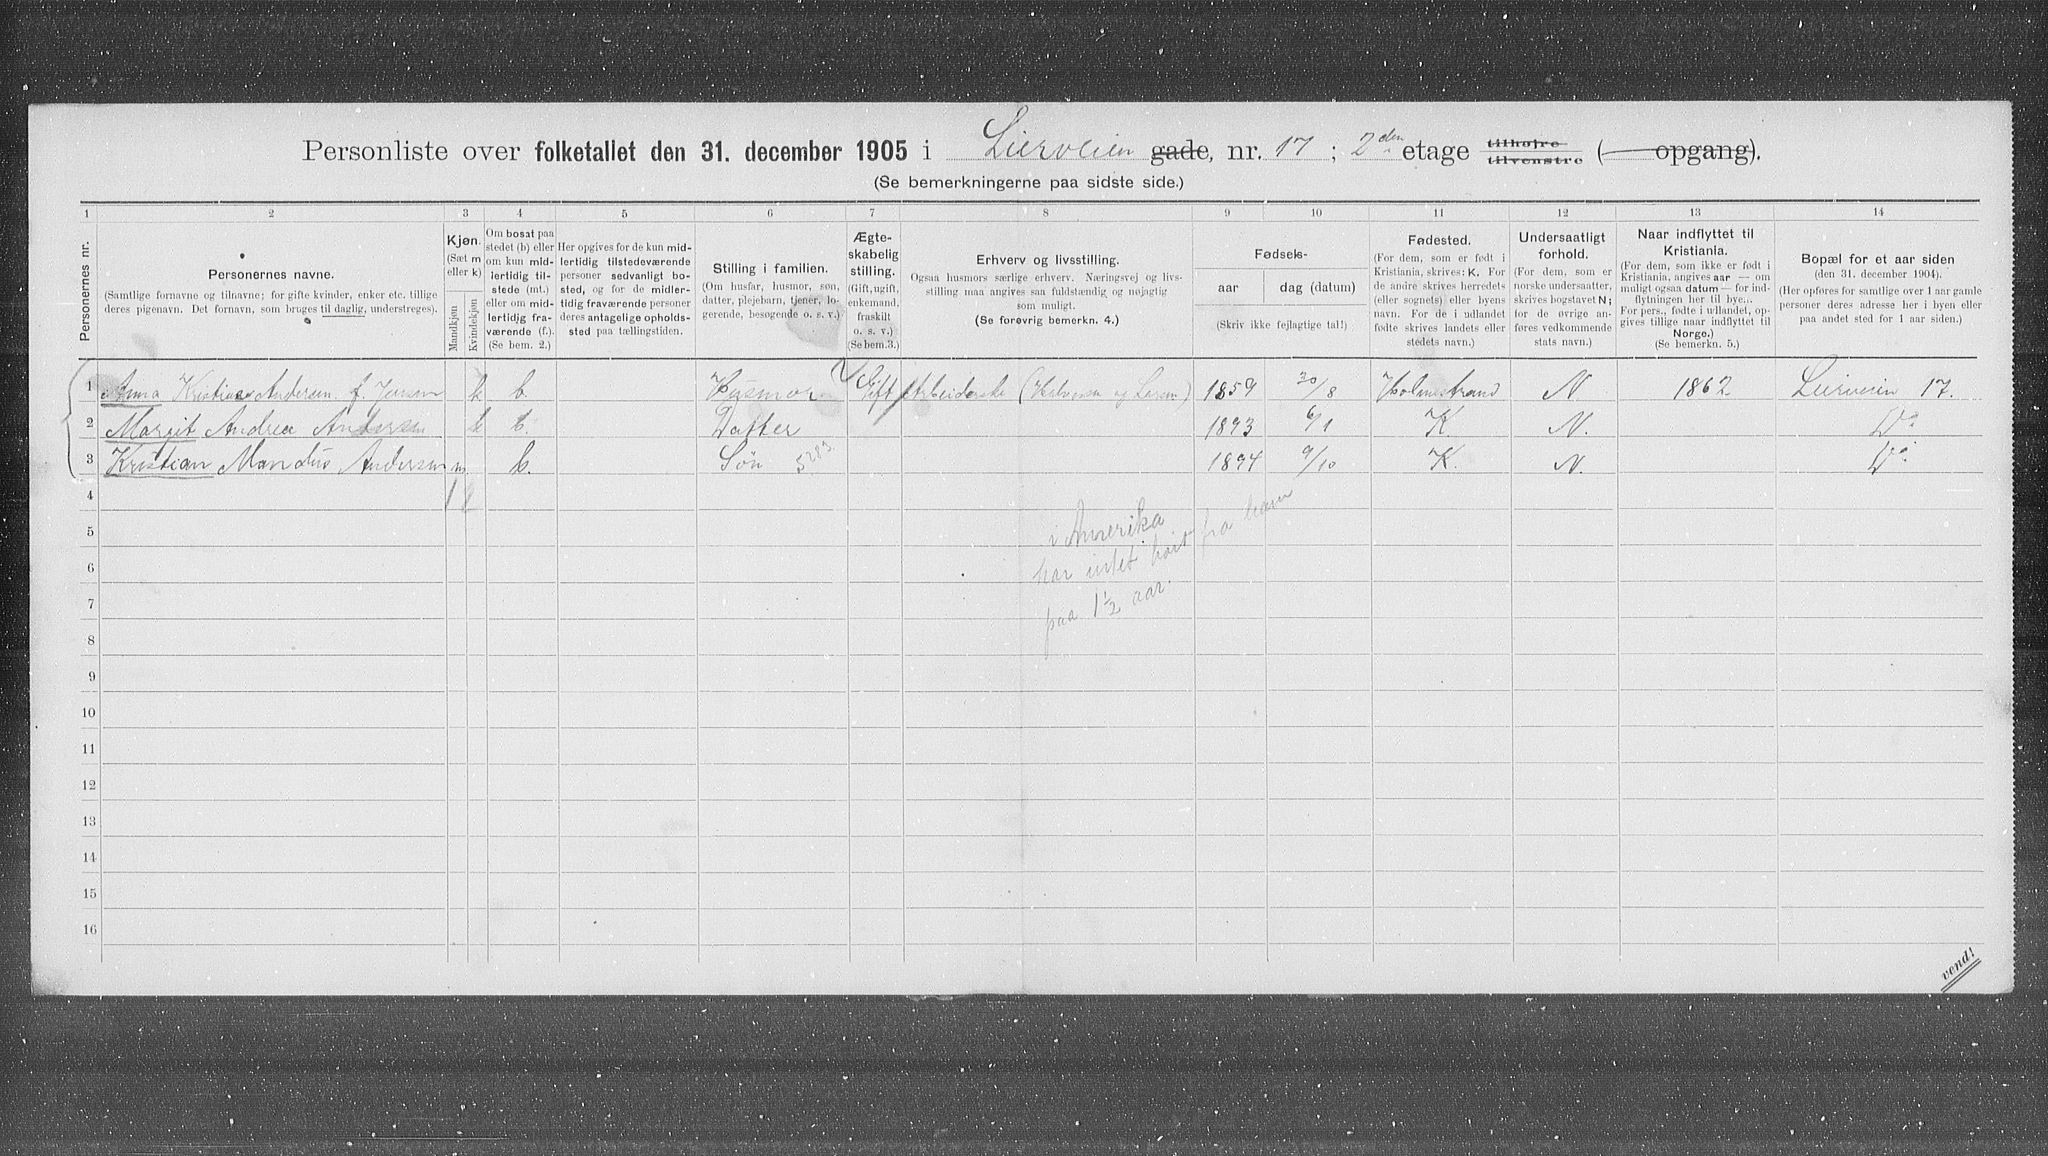 Personliste over folketallet den 31. december 1905 i Lierveien gade, nr. 17 ; 2den etage tilhøjre tilvenstre ( opgang).
(Se bemerkningerne paa sidste side.)
1 2 3 4 5 6 7 8 9 10 11 12 13 14
Personernes nr.
Personernes navne.
(Samtlige fornavne og tilnavne; for gifte kvinder, enker etc. tillige
deres pigenavn. Det fornavn, som bruges til daglig, understreges).
Kjøn.
(Sæt m
eller k)
Mandkjøn
Kvindekjøn
Om bosat paa
stedet (b) eller
om kun midlertidig
tilstede (mt.)
eller om midlertidig
fraværende (f.).
(Se bem. 2.)
Her opgives for de kun midlertidig
tilstedeværende
personer sedvanligt bosted,
og for de midlertidig
fraværende personer
deres antagelige opholdssted
paa tællingstiden.
Stilling i familien.
(Om husfar, husmor, søn,
datter, plejebarn, tjener, logerende,
besøgende o. s. v.)
Ægteskabelig
stilling.
(Gift, ugift,
enkemand,
fraskilt
o. s. v.)
(Se bem.3.)
Erhverv og livsstilling.
Ogsaa husmors særlige erhverv. Næringsvej og livsstilling
maa angives saa fuldstændig og nøjagtig
som muligt.
(Se forøvrig bemerkn. 4.)
Fødsels-
aar dag (datum)
(Skriv ikke fejlagtige tal!)
Fødested.
(For dem, som er født i
Kristiania, skrives: K. For
de andre skrives herredets
(eller sognets) eller byens
navn. For de i udlandet
fødte skrives landets eller
stedets navn.)
Undersaatligt
forhold.
(For dem, som er
norske undersaatter,
skrives bogstavet N;
for de øvrige anføres
vedkommende
stats navn.)
Naar indflyttet til
Kristiania.
(For dem, som ikke er født i
Kristiania, angives aar — om
muligt ogsaa datum — for indflytningen
her til bye...
For pers., fødte i udlandet, opgives
tillige naar indflyttet til
Norge.)
(Se bemerkn. 5.)
Bopæl for et aar siden
(den 31. december 1904).
(Her opføres for samtlige over 1 aar gamle
personer deres adresse her i byen eller
paa andet sted for 1 aar siden.)
1 Anna Kristine Andersen f. Jensen k b. Husmor Gift Arbeiderske 1859 30/8 Holmestrand N 1862 Lierveien 17.
2 Margit Andrea Andersen k b. Datter 1893 6/1 K. N. Do
3 Kristian Mandus Andersen m. b. Søn 5283 1894 9/10 K. N. Do
4 1 2
i Amerika
5
har intet hørt fra ham
6
paa 1½ aar.
7
8
9
10
11
12
13
14
15
16
vend!